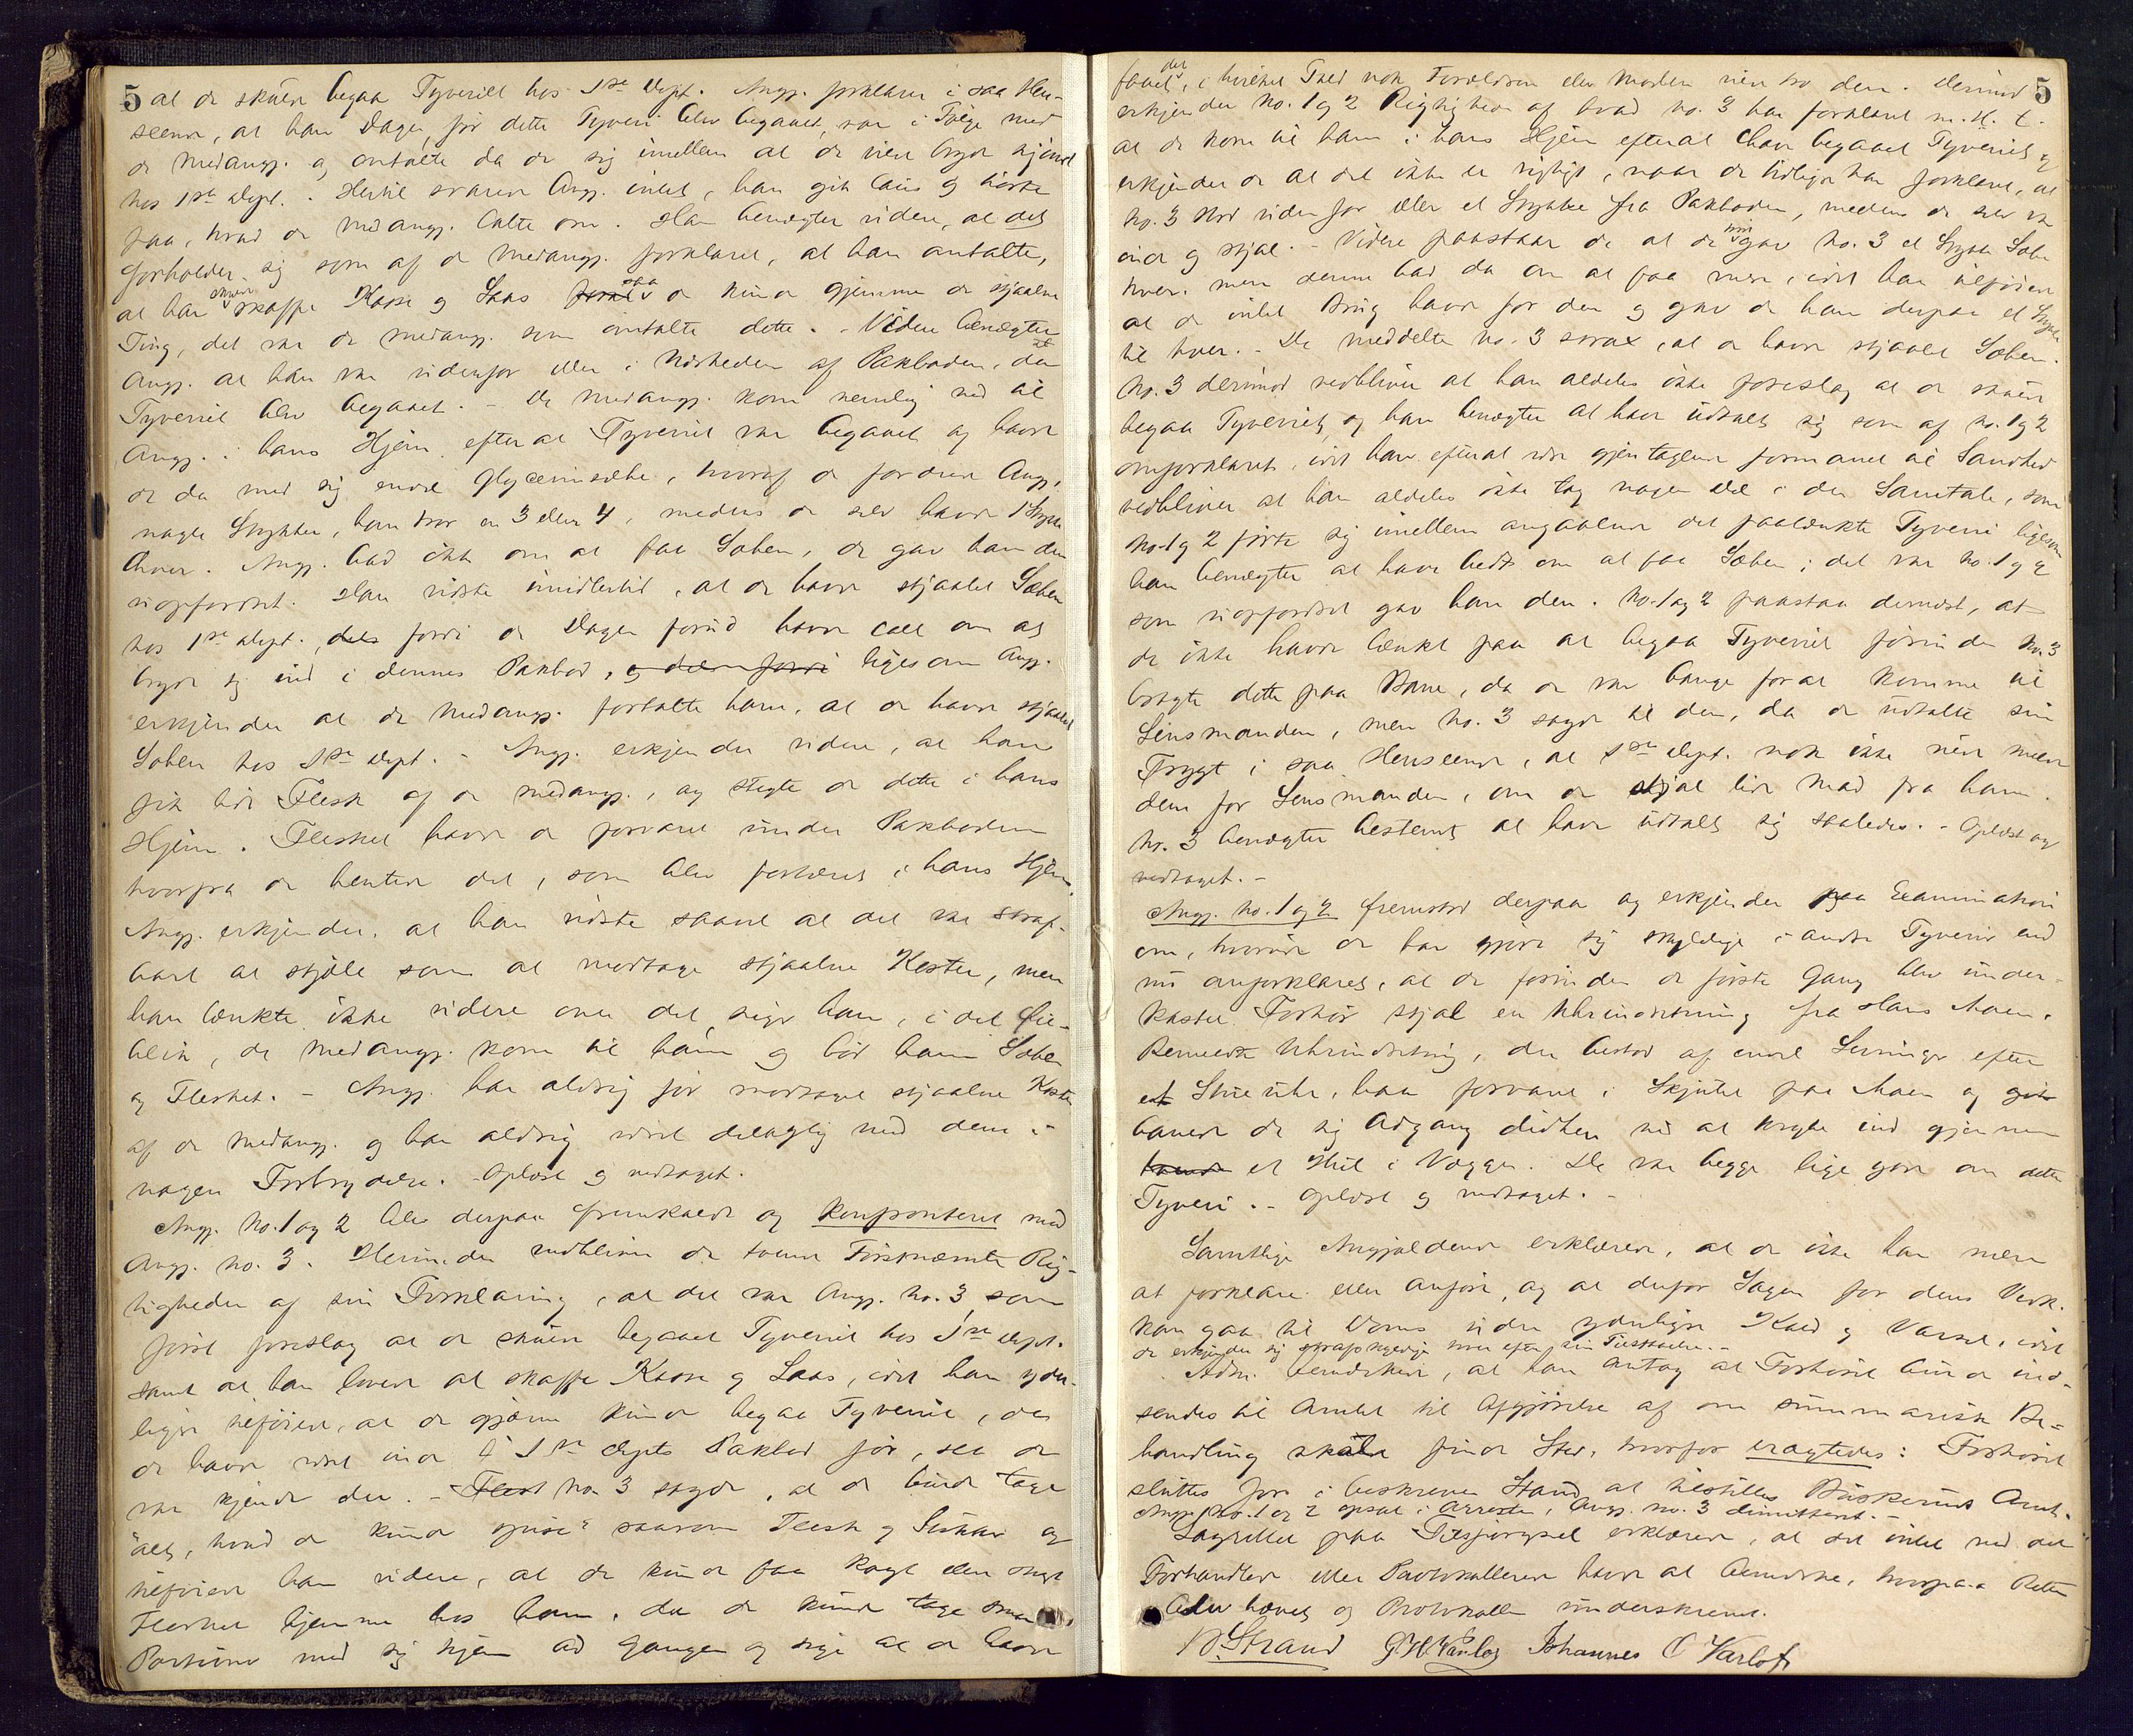 5 at de skulde begaa Tyveriet hos 1ste Dept. Ang. forklarer i saa Hen-
seende, at han Dagen før dette Tyveri blev begaaet, var i Følge med
de medang. og omtalte da de sig imellem at de vilde bryde
hos 1ste Dept. Hertil svarede Ang. intet, han gik taus og hørte
paa, hvad de medang. talte om. Han benægter videre, at det
forholder sig som af de medang. forklaret, at han omtalte,
at han skulde skaffe Kasse og Laas saa de kunde gjemme de stjaalne
Ting, det var de medang. som omtalte dette. - Videre benægter
Ang. at han var udenfor eller i Nærheden af Pakboden, da
Tyveriet blev begaaet. - De medang. kom nemlig ned til
Ang. i hans Hjem efterat Tyveriet var begaaet og havde
de da med sig endel Glycerinsæbe, hvoraf de forærede Ang.
nogle Stykker, han tror en 3 eller 4, medens de selv havde 1 Stykke
hver. Ang. bad ikke om at faa Sæben, de gav ham den
uopfordret. Han vidste imidlertid, at de havde stjaalet Sæben
hos 1ste Dept., dels fordi de Dagen forud havde talt om at
bryde sig ind i dennes Pakbod, ligesom Ang.
erkjender at de medang. fortalte ham, at de havde stjaalet
Sæben hos 1ste Dept. - Ang. erkjender videre, at han
fik lidt Flesk af de medang., og stegte de dette i hans
Hjem. Flesket havde de forvaret under Pakboden
hvorfra de hentede det, som blev fortæret i hans Hjem.
Ang. erkjender, at han vidste saavel at det var straf-
bart at stjæle som at modtage stjaalne Koster, men
han tænkte ikke videre over det, siger han, i det Øie-
blik, de medang. kom til ham og bød ham Sæbe
og Flesket. - Ang. har aldrig før modtaget stjaalne Koster
af de medang. og har aldrig været delagtig med dem i
nogen Forbrydelse. - Oplæst og vedtaget.
Ang. No. 1 og 2 blev derpaa fremkaldt og konfronteret med
Ang. No. 3. Herunder vedbliver de tvende Førstnævnte Rig-
tigheden af sin Forklaring, at det var Ang. No. 3, som
først foreslog at de skulde begaaet Tyveriet hos 1ste Dept.
samt at han lovede at skaffe Kasse og Laas, idet han yder-
ligere tilføiede, at de gjerne kunde begaa Tyveriet, da
de havde været inde i 1ste Depts Pakbod før, saa de
var kjendt der. - No. 3 sagde, at de burde tage
"alt, hvad de kunde spise" saasom Flesk og Sukker og
tilføiede han videre, at de kunde faa kogt eller stegt
Flesket hjemme hos ham, da de kunde tage smaa
Portioner med sig hjem ad Gangen og sige at de havde
5
faaet det, i hvilket Fald nok Forældrene eller Moderen vilde tro dem. Derimod
erkjender No. 1 og 2 Rigtigheden af hvad No. 3 har forklaret m. H. t.
at de kom til ham i hans Hjem efterat have begaaet Tyveriet og
erkjender de at det ikke er rigtigt, naar de tidligere har forklaret, at
No. 3 stod udenfor eller et Stykke fra Pakboden, medens de selv var
inde og stjal. - Videre paastaar de at de gav No. 3 et Stykke Sæbe
hver, men denne bad da om at faa mere, idet han tilføiede
at de intet Brug havde for den og gav de ham derpaa et Stykke
til hver. - De meddelte No. 3 strax, at de havde stjaalet Sæben.
No. 3 derimod vedbliver at han aldeles ikke foreslog at de skulde
begaa Tyveriet, og han benægter at have udtalt sig som af No. 1 og 2
omforklaret, idet han efterat være gjentagende formanet til Sandhed
vedbliver at han aldeles ikke tog nogen Del i den Samtale, som
No. 1 og 2 førte sig imellem angaaende det paatænkte Tyveri ligesom
han benægter at have bedt om at faa Sæben; det var No. 1 og 2
som uopfordret gav ham den. No. 1 og 2 paastaa dernæst, at
de ikke havde tænkt paa at begaa Tyveriet førinden No. 3
bragte dette paa Bane, da de var bange for at komme til
Lensmanden, men No. 3 sagde til dem, da de udtalte sin
Frygt i saa Henseende, at 1ste Dept. nok ikke vilde melde
dem for Lensmanden, om de stjal lidt Mad fra ham.
No. 3 benægter bestemt at have udtalt sig saaledes. - Oplæst og
vedtaget. -
Ang. No. 1 og 2 fremstod derpaa og erkjender paa Examination
om, hvorvidt de har gjort sig skyldige i andre Tyverier end
nu omforklaret, at de forinden de første Gang blev under-
kastet Forhør stjal en Uhrindretning fra Hans Moen.
Bemeldte Uhrindretning, der bestod af endel Levninger efter
et Stueuhr, var forvaret i Skjulet paa Moen og
banede de sig Adgang didhen ved at krybe ind gjennem
et Hul i Væggen. De var begge lige gode om dette
Tyveri. - Oplæst og vedtaget. -
Samtlige Angjældende erklærede, at de ikke har mere
at forklare eller anføre, og at derfor Sagen for deres Vedk.
kan gaa til Doms uden yderligere Kald og Varsel, idet
de erkjender sig strafskyldige hver efter sin Tilstaaelse. -
Adm. bemærkede, at han antog at Forhøret burde ind-
sendes til Amtet til Afgjørelse af om summarisk Be-
handling skulde finde Sted, hvorfor eragtedes: Forhøret
sluttes for i beskreven Stand at tilstilles Buskeruds Amt.
Ang. No. 1 og 2 opsat i Arresten, Ang. No. 3 dimitteret. -
Lagrettet paa Tilspørgsel erklærede, at det intet ved det
Forhandlede eller Protokollerede havde at bemærke, hvorpaa Retten
blev hævet og Protokollen underskrevet.
Strand G. H. Varlo Johannes O Varlof